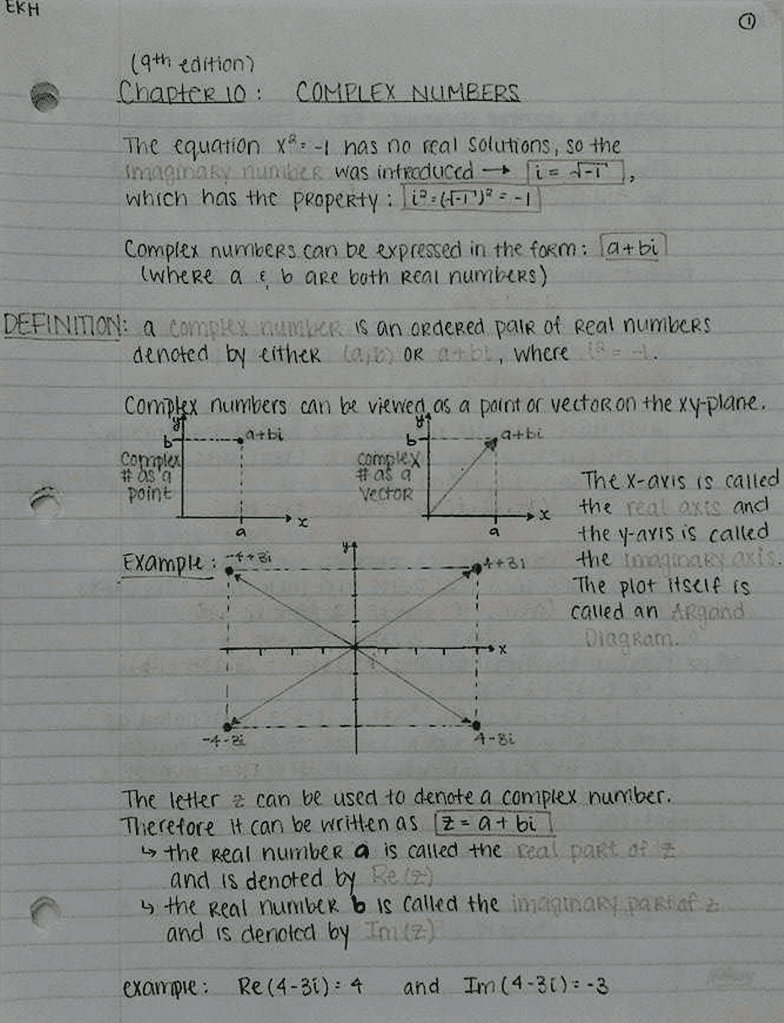 EKH
①
(9th edition)
Chapter 10: COMPLEX NUMBERS
The equation x² = -1 has no real solutions, so the
imaginary number was introduced → i = √-1,
which has the property: i² = (√-1)² = -1
Complex numbers can be expressed in the form: a+bi
(where a & b are both real numbers)
DEFINITION: a complex number is an ordered pair of real numbers
denoted by either (a,b) or a+bi, where i² = -1.
Complex numbers can be viewed as a point or vector on the xy-plane.
y
b
a+bi
Complex
# as a
point
a
x
y
b
a+bi
complex
# as a
vector
a
x
The x-axis is called
the real axis and
the y-axis is called
the imaginary axis.
The plot itself is
called an Argand
Diagram.
Example:
-4+3i
y
4+3i
x
-4-3i
4-3i
The letter z can be used to denote a complex number.
Therefore it can be written as z = a + bi
↳ the real number a is called the real part of z
and is denoted by Re(z)
↳ the real number b is called the imaginary part of z
and is denoted by Im(z)
example: Re(4-3i) = 4 and Im(4-3i) = -3